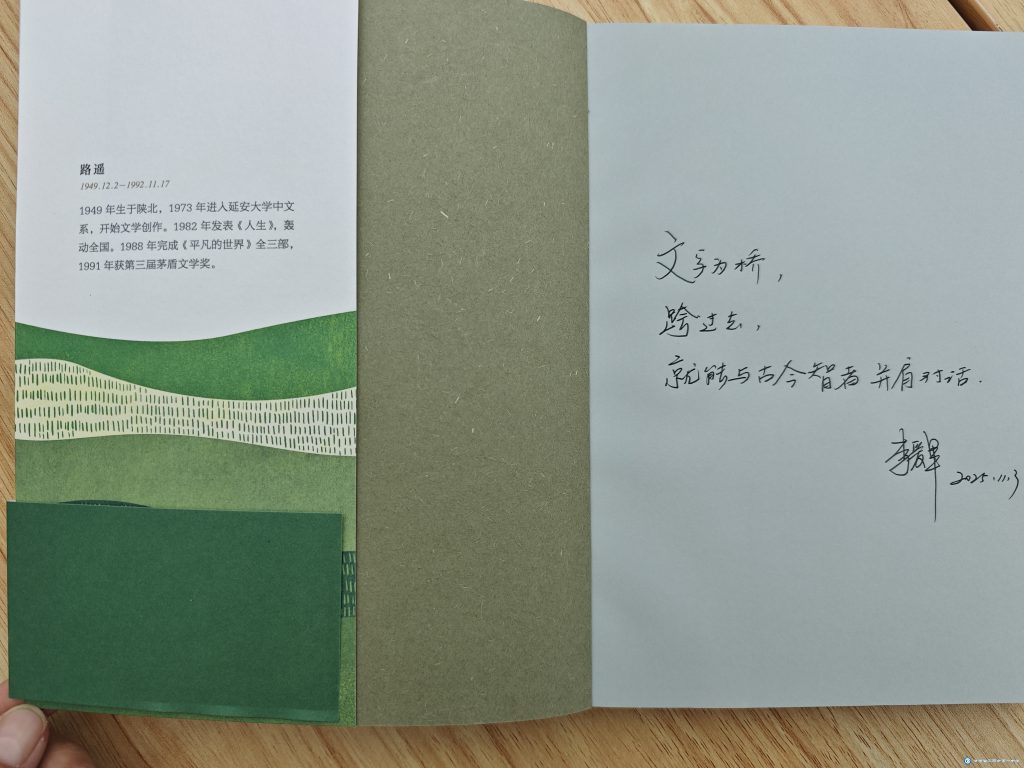 路遥
1949.12.2—1992.11.17
1949 年生于陕北，1973 年进入延安大学中文
系，开始文学创作。1982 年发表《人生》，轰
动全国。1988 年完成《平凡的世界》全三部，
1991 年获第三届茅盾文学奖。
文字为桥，
跨过去，
就能与古今智者并肩对话.
李
2025.11.3